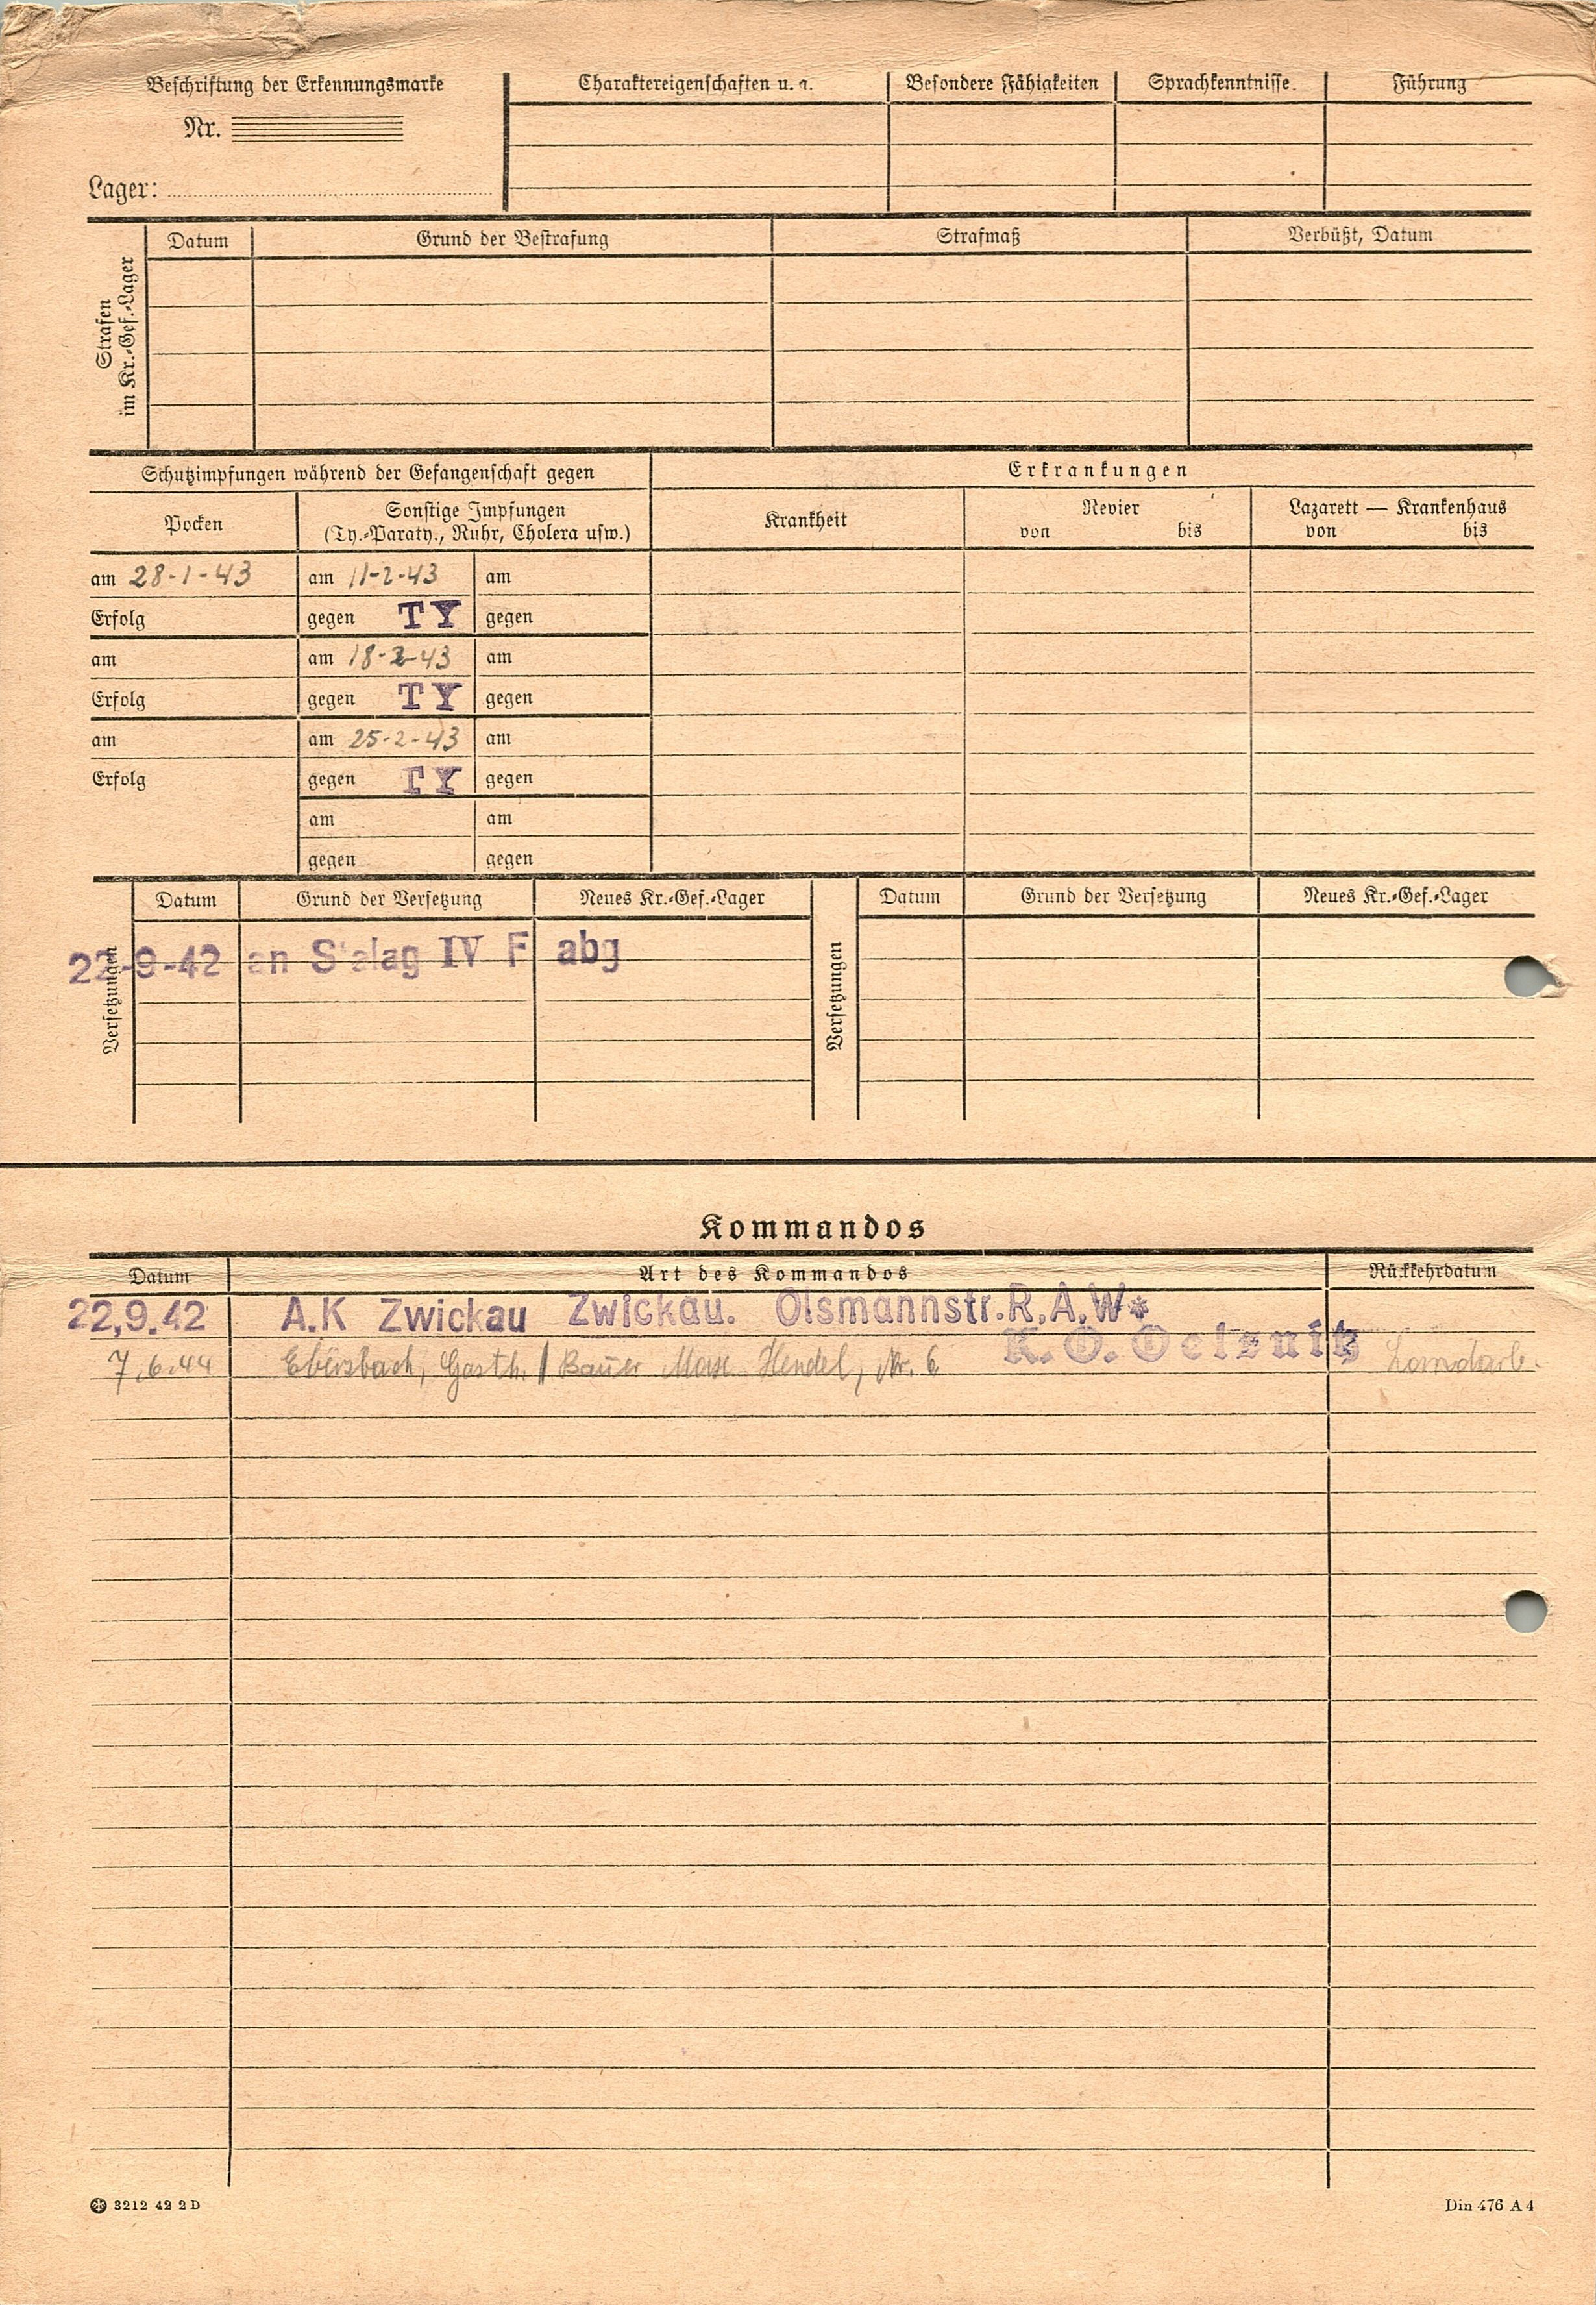 Beschriftung der Erkennungsmarke
Charaktereigenschaften u. a.
Besondere Fähigkeiten
Sprachkenntnisse
Führung
Nr.
Lager:
Strafen
im Kr.-Gef.-Lager
Datum
Grund der Bestrafung
Strafmaß
Verbüßt, Datum
Schutzimpfungen während der Gefangenschaft gegen
Erkrankungen
Pocken
Sonstige Impfungen
(Ty.-Paraty., Ruhr, Cholera usw.)
Krankheit
Revier
von bis
Lazarett — Krankenhaus
von bis
am 28-1-43 am 11-2-43 am
Erfolg gegen TY gegen
am am 18-2-43 am
Erfolg gegen TY gegen
am am 25-2-43 am
Erfolg gegen TY gegen
am am
gegen gegen
Versetzungen
Datum Grund der Versetzung Neues Kr.-Gef.-Lager
Versetzungen
Datum Grund der Versetzung Neues Kr.-Gef.-Lager
22-9-42 an Stalag IV F abg
Kommandos
Datum Art des Kommandos Rückkehrdatum
22.9.42 A.K Zwickau Zwickau. Olsmannstr.R.A.W*
K.O. Oelsnitz
7.6.44 Ebersbach, Gasth. / Bauer Max Hendel, Nr. 6
3212 42 2 D
Din 476 A 4